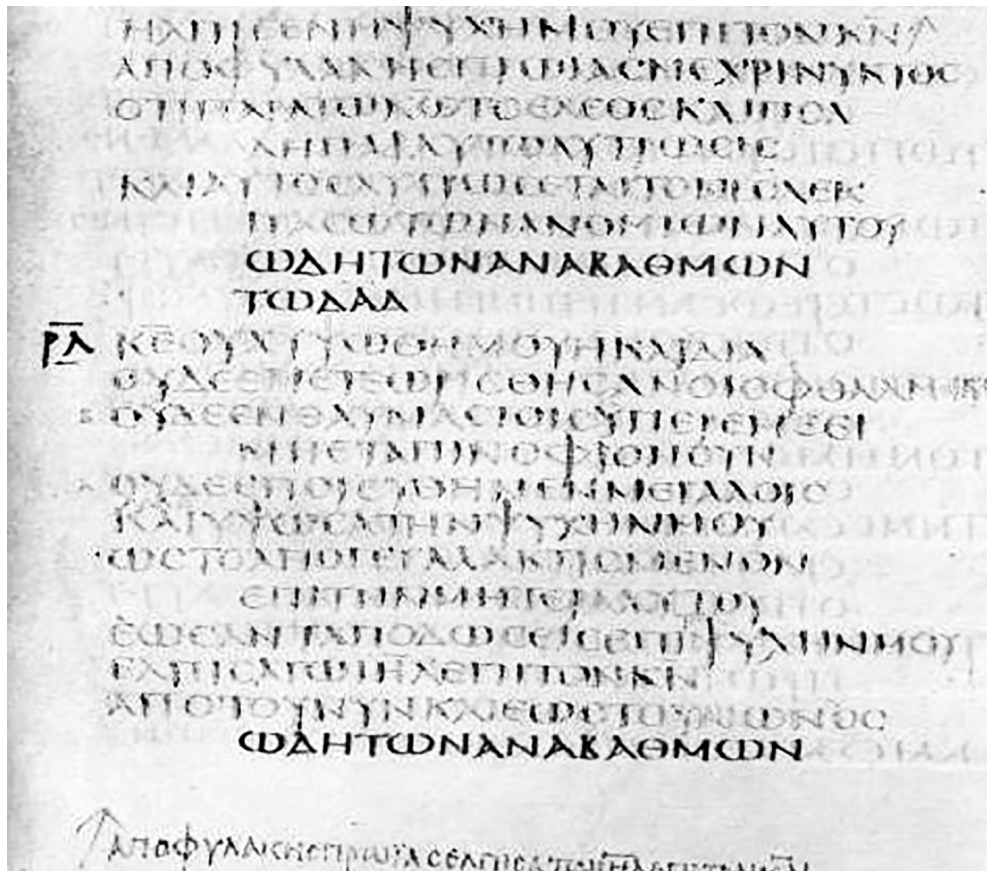 ΗΛΠΙCΕΝΗΨΥΧΗΜΟΥΕΠΙΤΟΝΚ̅Ν̅↑
ΑΠΟΦΥΛΑΚΗCΠΡΩΪΑCΜΕΧΡΙΝΥΚΤΟC
ΟΤΙΠΑΡΑΤΩΚ̅Ω̅ΤΟΕΛΕΟCΚΑΙΠΟΛ
ΛΗΠΑΡΑΥΤΩΛΥΤΡΩCΙC
ΚΑΙΑΥΤΟCΛΥΤΡΩCΕΤΑΙΤΟΝΙ̅Η̅Λ̅ΕΚ
ΠΑCΩΤΩΝΑΝΟΜΙΩΝΑΥΤΟΥ
ΩΔΗΤΩΝΑΝΑΒΑΘΜΩΝ
ΤΩΔΑΔ
Ρ̅Λ̅ Κ̅Ε̅ΟΥΧΥΨΩΘΗΜΟΥΗΚΑΡΔΙΑ
ΟΥΔΕΕΜΕΤΕΩΡΙCΘΗCΑΝΟΙΟΦΘΑΛΜΟΙ
ΟΥΔΕΕΝΘΑΥΜΑCΙΟΙCΥΠΕΡΕΜΕΕΙ
ΜΗΕΤΑΠΙΝΟΦΡΟΝΟΥΝ
ΟΥΔΕΕΠΟΡΕΥΘΗΝΕΝΜΕΓΑΛΟΙC
ΚΑΙΥΨΩCΑΤΗΝΨΥΧΗΝΜΟΥ
ΩCΤΟΑΠΟΓΕΓΑΛΑΚΤΙCΜΕΝΟΝ
ΕΠΙΤΗΝΜΗΤΕΡΑΑΥΤΟΥ
ΕΩCΑΝΤΑΠΟΔΩCΕΙCΕΠΙΨΥΧΗΝΜΟΥ
ΕΛΠΙCΑΤΩΙ̅Η̅Λ̅ΕΠΙΤΟΝΚ̅Ν̅
ΑΠΟΤΟΥΝΥΝΚΑΙΕΩCΤΟΥΑΙΩΝΟC
ΩΔΗΤΩΝΑΝΑΒΑΘΜΩΝ
↑ΑΠΟΦΥΛΑΚΗCΠΡΩΙΑCΕΛΠΙCΑΤΩΙ̅Η̅Λ̅ΕΠΙΤΟΝΚ̅Ν̅